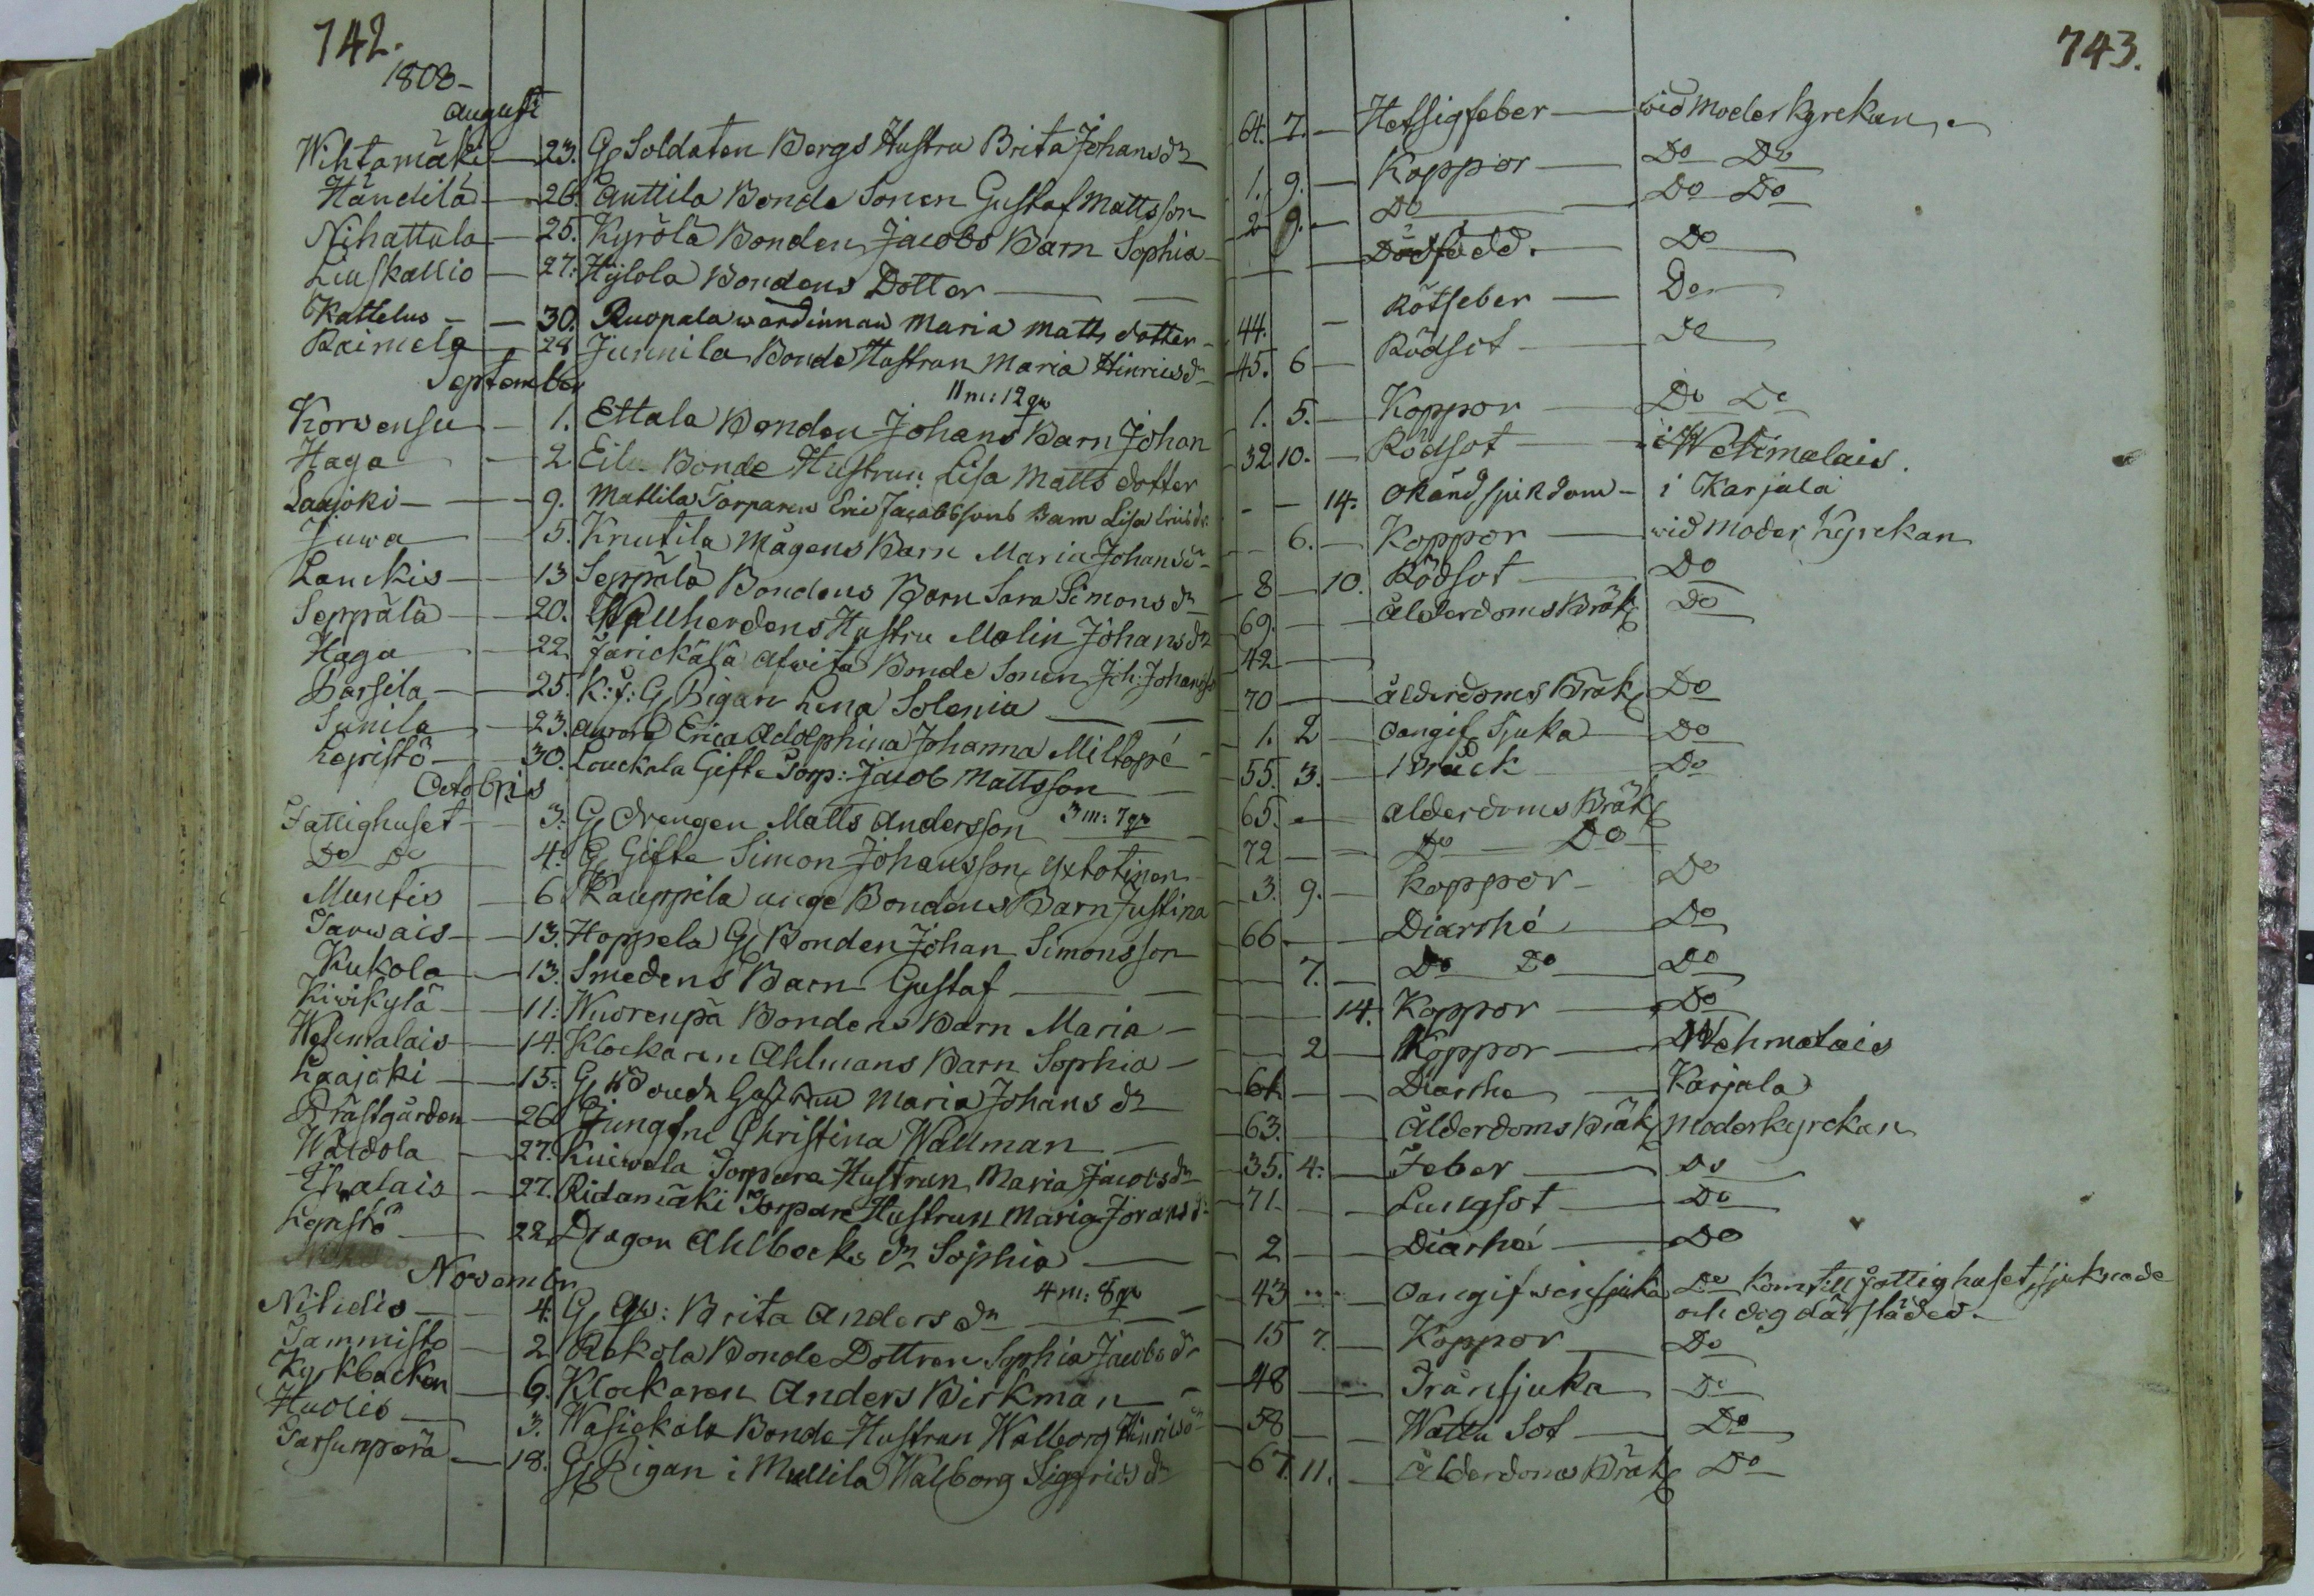 742.
1808-
August
Wihtamäki - 23. G. Soldaten Bergs Hustru Brita Johansdr
Händilä - 26. Anttila Bonde Sonen Gustaf Mattsson
Nihattula - 25. Kyrölä Bonden Jacobs Barn Sophia -
Liuskallio - 27. Hylola Bondens Dotter - -
Kattelus - - 30. Ruopala wärdinnan Maria Matts dotter -
Raimela - 28 Junnila Bonde Hustrun Maria Hinricsdr
September
11 m: 12 qw
Korwensu - 1. Ettala Bonden Johans Barn Johan
Haga - 2 Eila Bonde Hustrun Lisa Matts dotter
Laajoki - - 9. Mattila Torparen Eric Jacobssons Barn Lisa Ericsdr
Juwa - 5. Knutila Mågens Barn Maria Johansdr
Lauckis - 13 Seppälä Bondens Barn Sara Simonsdr
Seppälä - 20. Wallherdens Hustru Malin Johansdr
Haga - 22 Jarickala afwita Bonde Sonen Joh: Johansson
Parsila - 25. K: F: G. Pigan Lena Solenia - -
Sunila - 23. Aurora Erica Adolphina Johanna Miltopé -
Lepistö - 30. Louckala Gifte Torp: Jacob Mattsson -
Octobris
Fattighuset - 3. G. Drengen Matts Andersson 3 m: 7 qw
Do Do - 4. G. Gifte Simon Johansson Yxtotinen
Muntis - 6 Kauppila unge Bondens Barn Justina
Tarwais - 13. Hoppela G. Bonden Johan Simonsson
Kukola - 13. Smedens Barn Gustaf - -
Kiwikylä - 11. Wuorenpä Bondens Barn Maria -
Wehmalais - 14. Klockaren Ahlmans Barn Sophia -
Laajoki - 15. G. Maria Johans dr
Prästgården - 26 Jungfru Christina Wallman -
Waldola - 27. Kuiwela Torpare Hustrun Maria Jacobsdr
Ihalais - 27. Ridamäki Torpare Hustrun Maria Jöransdr
Lepistö - 22. Dragon Ahlbecks dr Sophia -
Novembr
4 m: 8 qw
Nihidis - 4. G. Qw: Brita Anders dr -
Tammisto - 2 Rekola Bonde Dottren Sophia Jacobsdr
Kyrkbacken - 6. Klockaren Anders Birkman -
Huolis - 3. Wasickala Bonde Hustrun Walborg Hinricsdr
Tarsunperä - 18. G. Pigan i Mullila Walborg Siggrids dr
743.
64. 7. - Hetsigfeber - wid Moderkyrckan.
1. 9. - Koppor - Do Do
2 9. - Do - Do Do
- - Dödfödd. - Do
44. - Rötfeber - Do
45. 6 - Rödsot - Do
1. 5. - Koppor - Do Do
32 10. - Rödsot - i Wehmalais.
- - 14. Okänd sjukdom - i Karjala
- 6. - Koppor - wid Moder kyrckan
8 - 10. Rödsot - Do
69. - - ålderdoms Bräk. Do
42 - -
70 - - ålderdoms Bräk. Do
1. 2 - Oangif. Sjuka - Do
55. 3. - Bråck - Do
65. - - ålderdoms Bräk.
72 - - Do - Do
3. 9. - Koppor - Do
66 - - Diarrhé - Do
- 7. - Do Do - Do
- - 14. Koppor - Do
- 2 - Koppor - Wehmalais
64 - - Diarrhe - Karjala
63. - - ålderdoms Bräk. Moderkyrckan
35. 4. - Feber - Do
71 - - Lungsot - Do
2 - - Diarhé - Do
43 - Oangifwen sjuka Do kom till fattighuset, sjuknade
och dog där städes.
15 7. - Koppor - Do
48 - - Tränsjuka - Do
58 - - Wattu Sot - Do
67. 11. - ålderdoms Bräk. Do